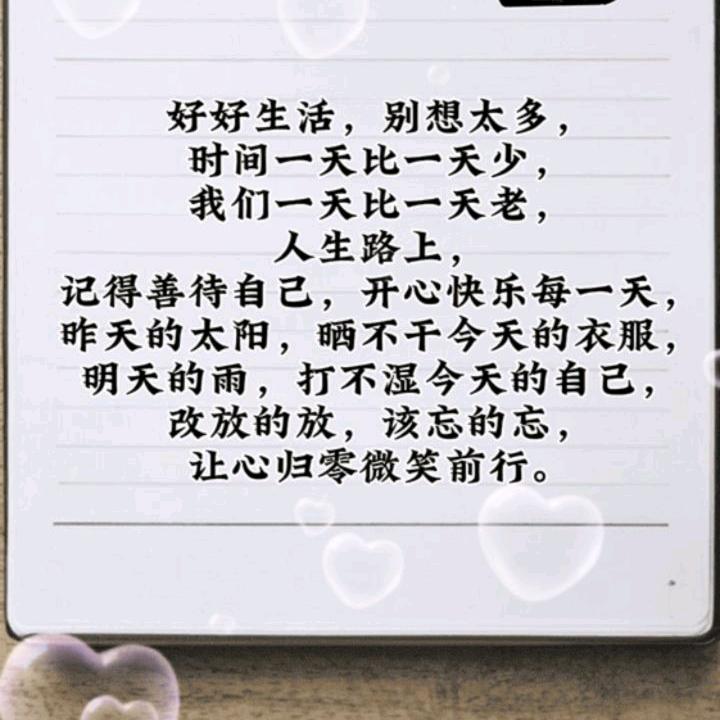 好好生活，别想太多，
时间一天比一天少，
我们一天比一天老，
人生路上，
记得善待自己，开心快乐每一天，
昨天的太阳，晒不干今天的衣服，
明天的雨，打不湿今天的自己，
改放的放，该忘的忘，
让心归零微笑前行。